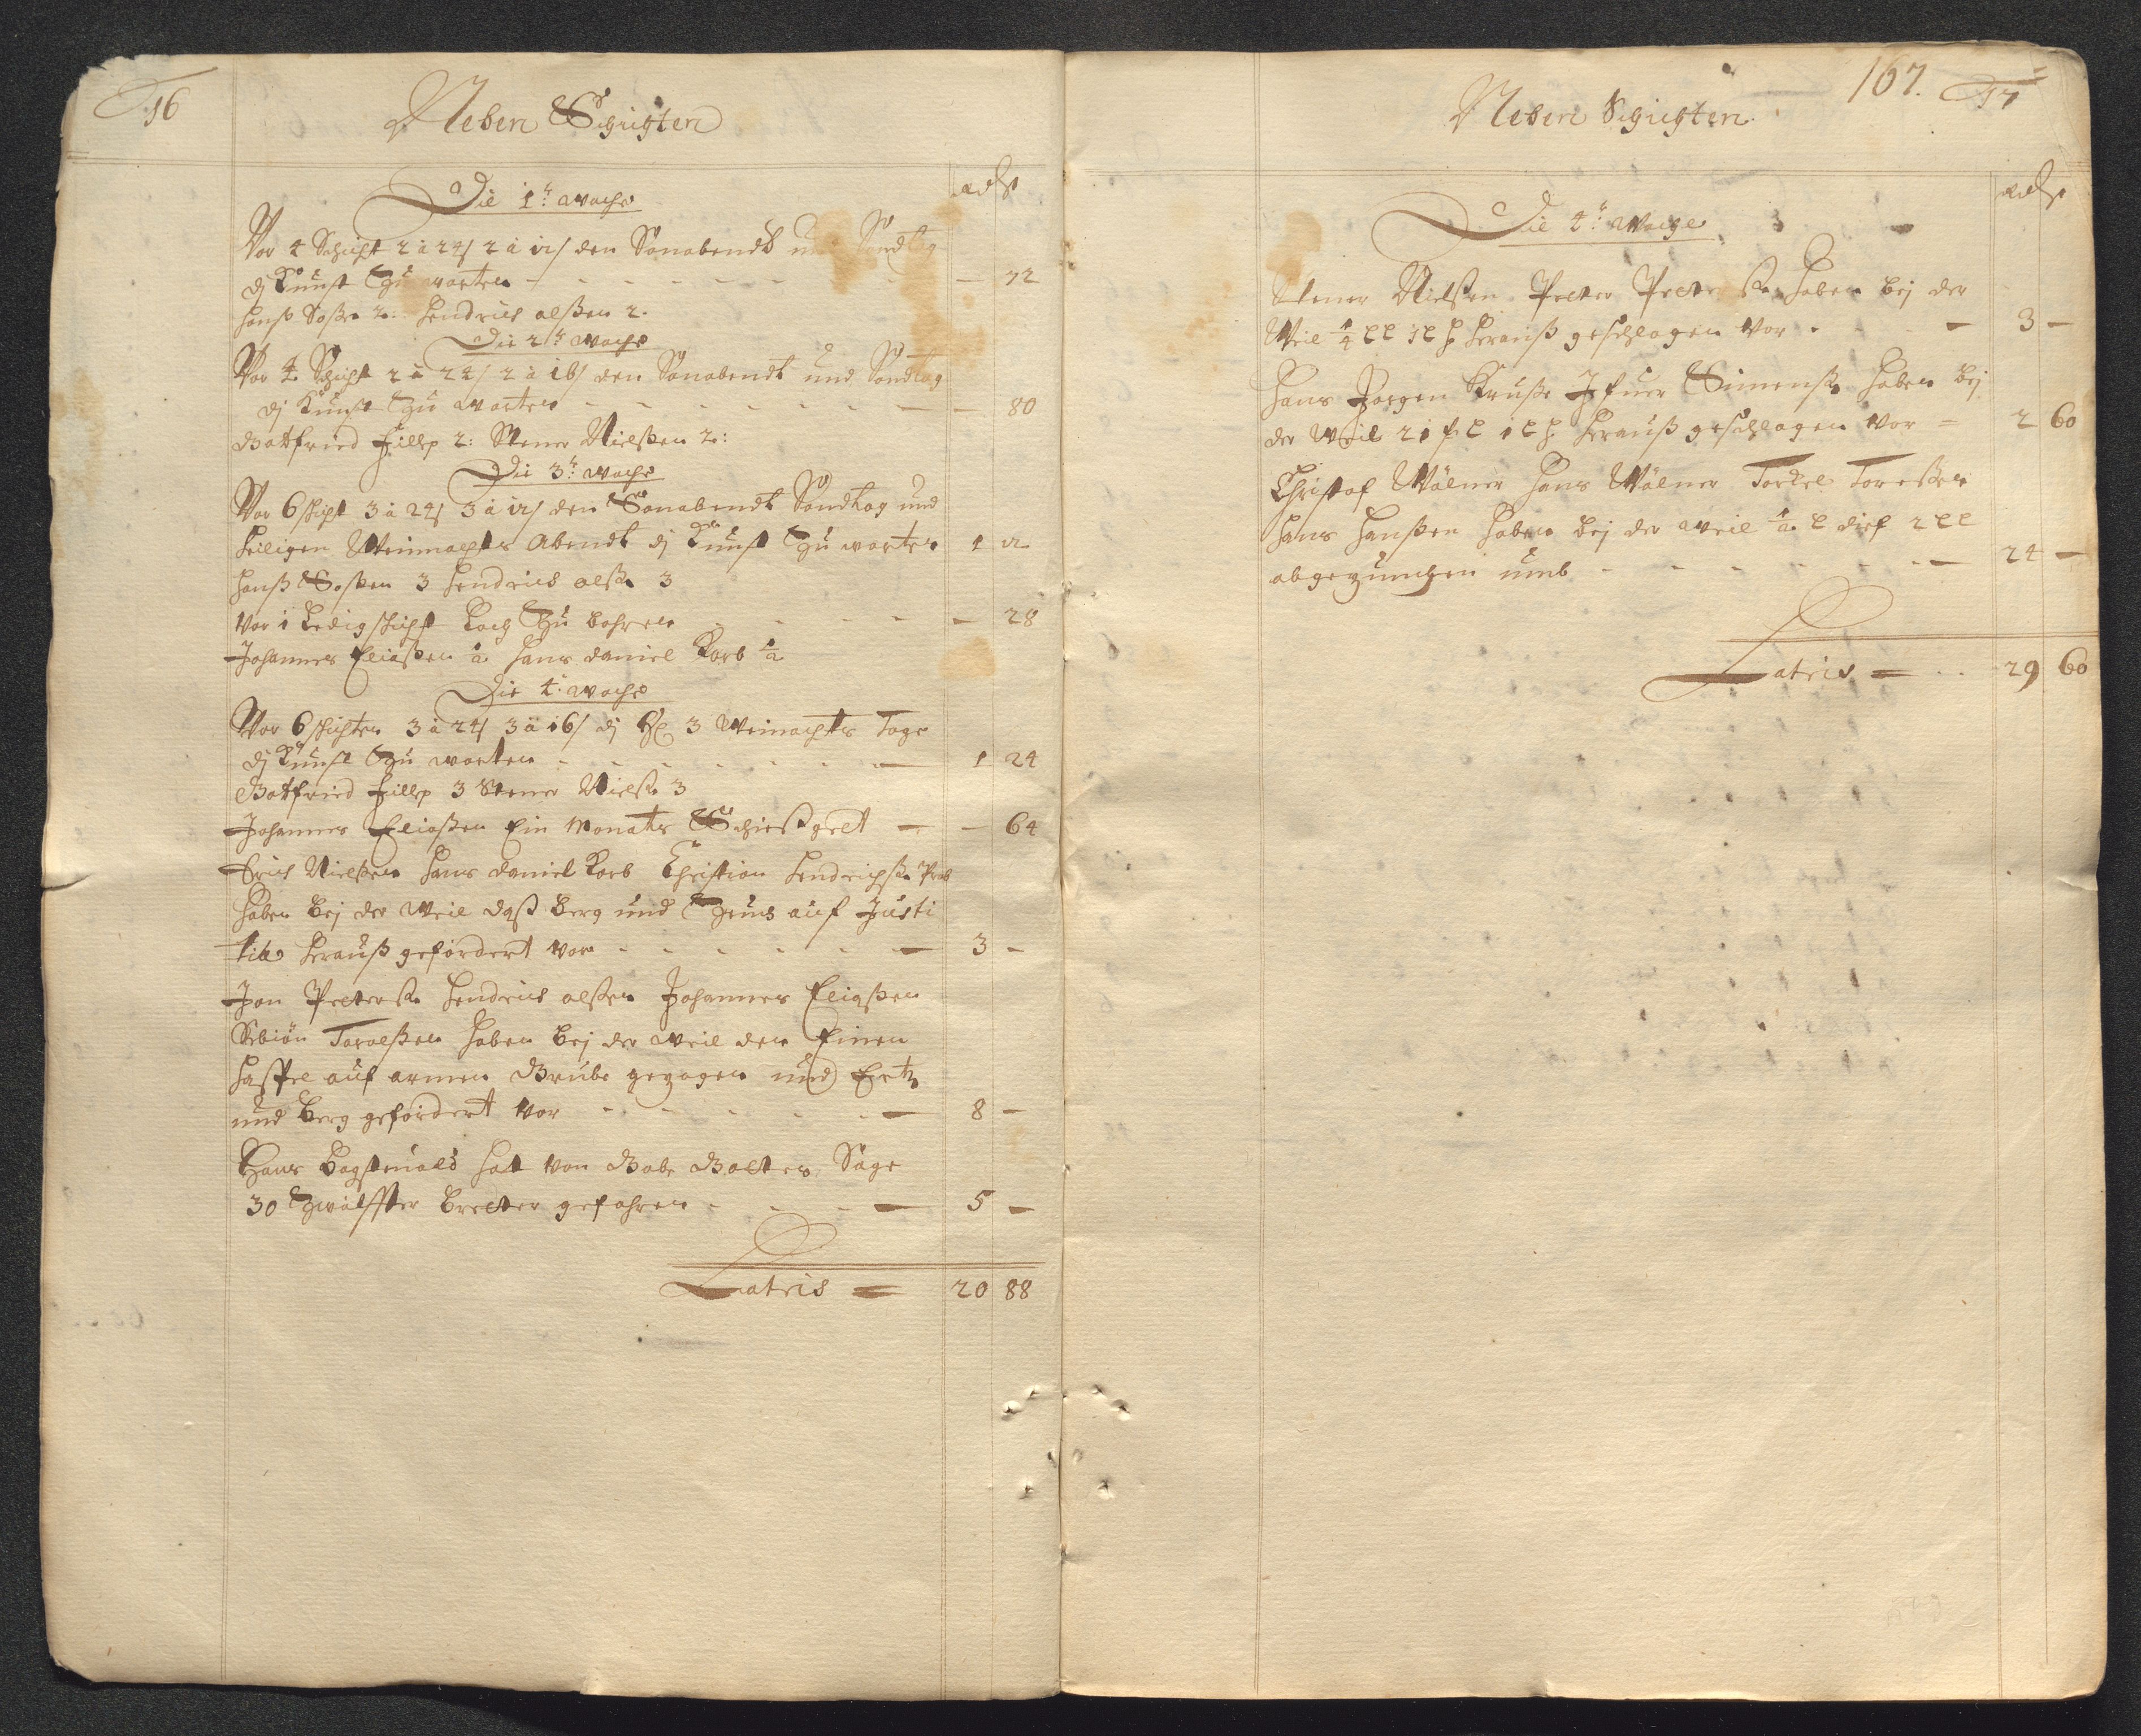 16
Neben Schichten
Die 1te woche
Vor 4 Schicht 2 à 24/ 2 à 12/ den Sonabendt und Sondtag
dj Kunst Zu warten - - - - - - - 72
Hanß Soßen 2: Hendrich olßen 2.
Die 2te woche
Vor 4 Schicht 2 à 24/ 2 à 16/ den Sonabendt und Sondtag
dj Kunst Zu warten - - - - - - - 80
Gottfried Hillp 2: Stener Nielßen 2:
Die 3te woche
Vor 6 schicht 3 à 24/ 3 à 12/ den Sonabendt Sondtag und
Heiligen Weinnachts Abendt dj Kunst Zu warten 1 12
Hanß Soßen 3 Hendrich olßen 3
Vor 1 Ledigschicht Loch Zu bohren - - - - 28
Johannes Eliaßen ½ Hans Daniel Korb ½
Die 4te woche
Vor 6 schichten 3 à 24/ 3 à 16/ dj 3 Weinachts Tage
dj Kunst Zu warten - - - - - - 1 24
Gottfried Hillp 3 Stener Nielßen 3
Johannes Eliaßen Ein Monats Schiesgelt - - 64
Erich Nielßen Hans Daniel Korb Christian Hendrichßen
Haben bej der weil daß berg und Zeug auf Justi
titia Herauß gefördert vor - - - - - - 3 -
Jon Peterßen Hendrich olßen Johannes Eliaßen
Torolßen Haben bej der weil den Einen
Haspel auf armen Grube gezogen und Ertz
und berg gefördert vor - - - - - 8 -
Hans hat von Gabe Golten Säge
30 Zwölffter bretter gefahren - - - 5 -
Latris = 20 88
167. 17
Neben Schichten
Die 4te Woche
Stener Nielßen Peter Peterßen Haben bej der
Weil Herauß geschlagen vor - - 3 -
Hans Jörgen Kruße Simenßen Haben bej
der Weil Herauß geschlagen vor = 2 60
Christof Wälner Hans Wälner Torkel Toresßen
Hans Hanßen Haben bej der weil ½ L dief 2 LL
abgezimchen umb - - - - - - 24 -
Latris = 29 60